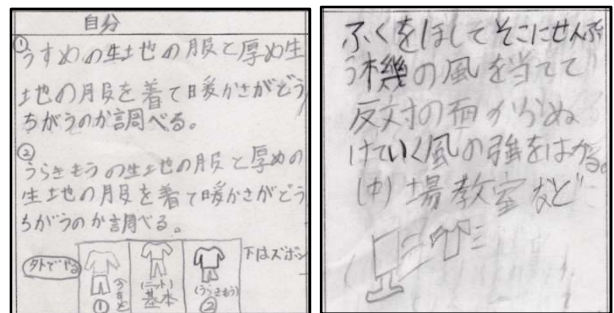 自分
①うすめの生地の服と厚め生
地の服を着て暖かさがどう
ちがうのか調べる。
②
うらきもうの生地の服と厚めの
生地の服を着て暖かさがどう
ちがうのか調べる。
外でやる
①
(ニット)
基本
(うらきもう)
②
下はズボン
ふくをほしてそこにせんぷ
う機の風を当てて
反対の面からぬ
けていく風の強をはかる。
場 教室など